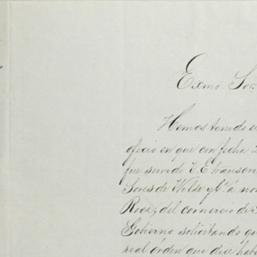 Exmo. Sor.
Hemos tenido e
oficio en que con fecha
fue servido V. E. transcri
Sores de Wilse y Cª á no
Rodz. del comercio de
Gobierno solicitando q
real órden que dice hab